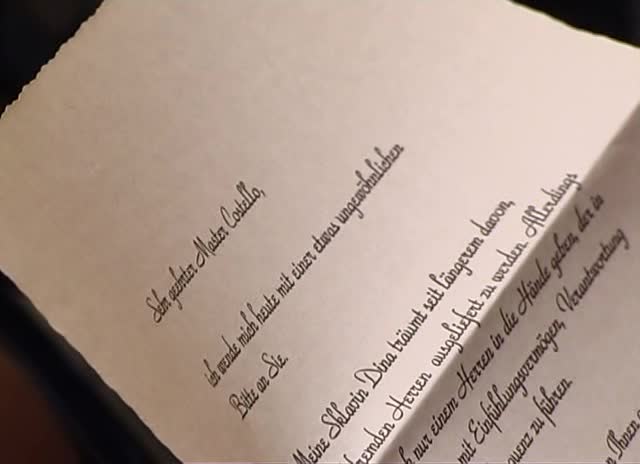 Sehr geehrter Master Costello,
ich wende mich heute mit einer etwas ungewöhnlichen
Bitte an Sie.
Meine Sklavin Dina träumt seit längerem davon,
fremden Herren ausgeliefert zu werden. Allerdings
nur einem Herren in die Hände geben, der in
mit Einfühlungsvermögen, Verantwortung
zu führen.
Ihnen